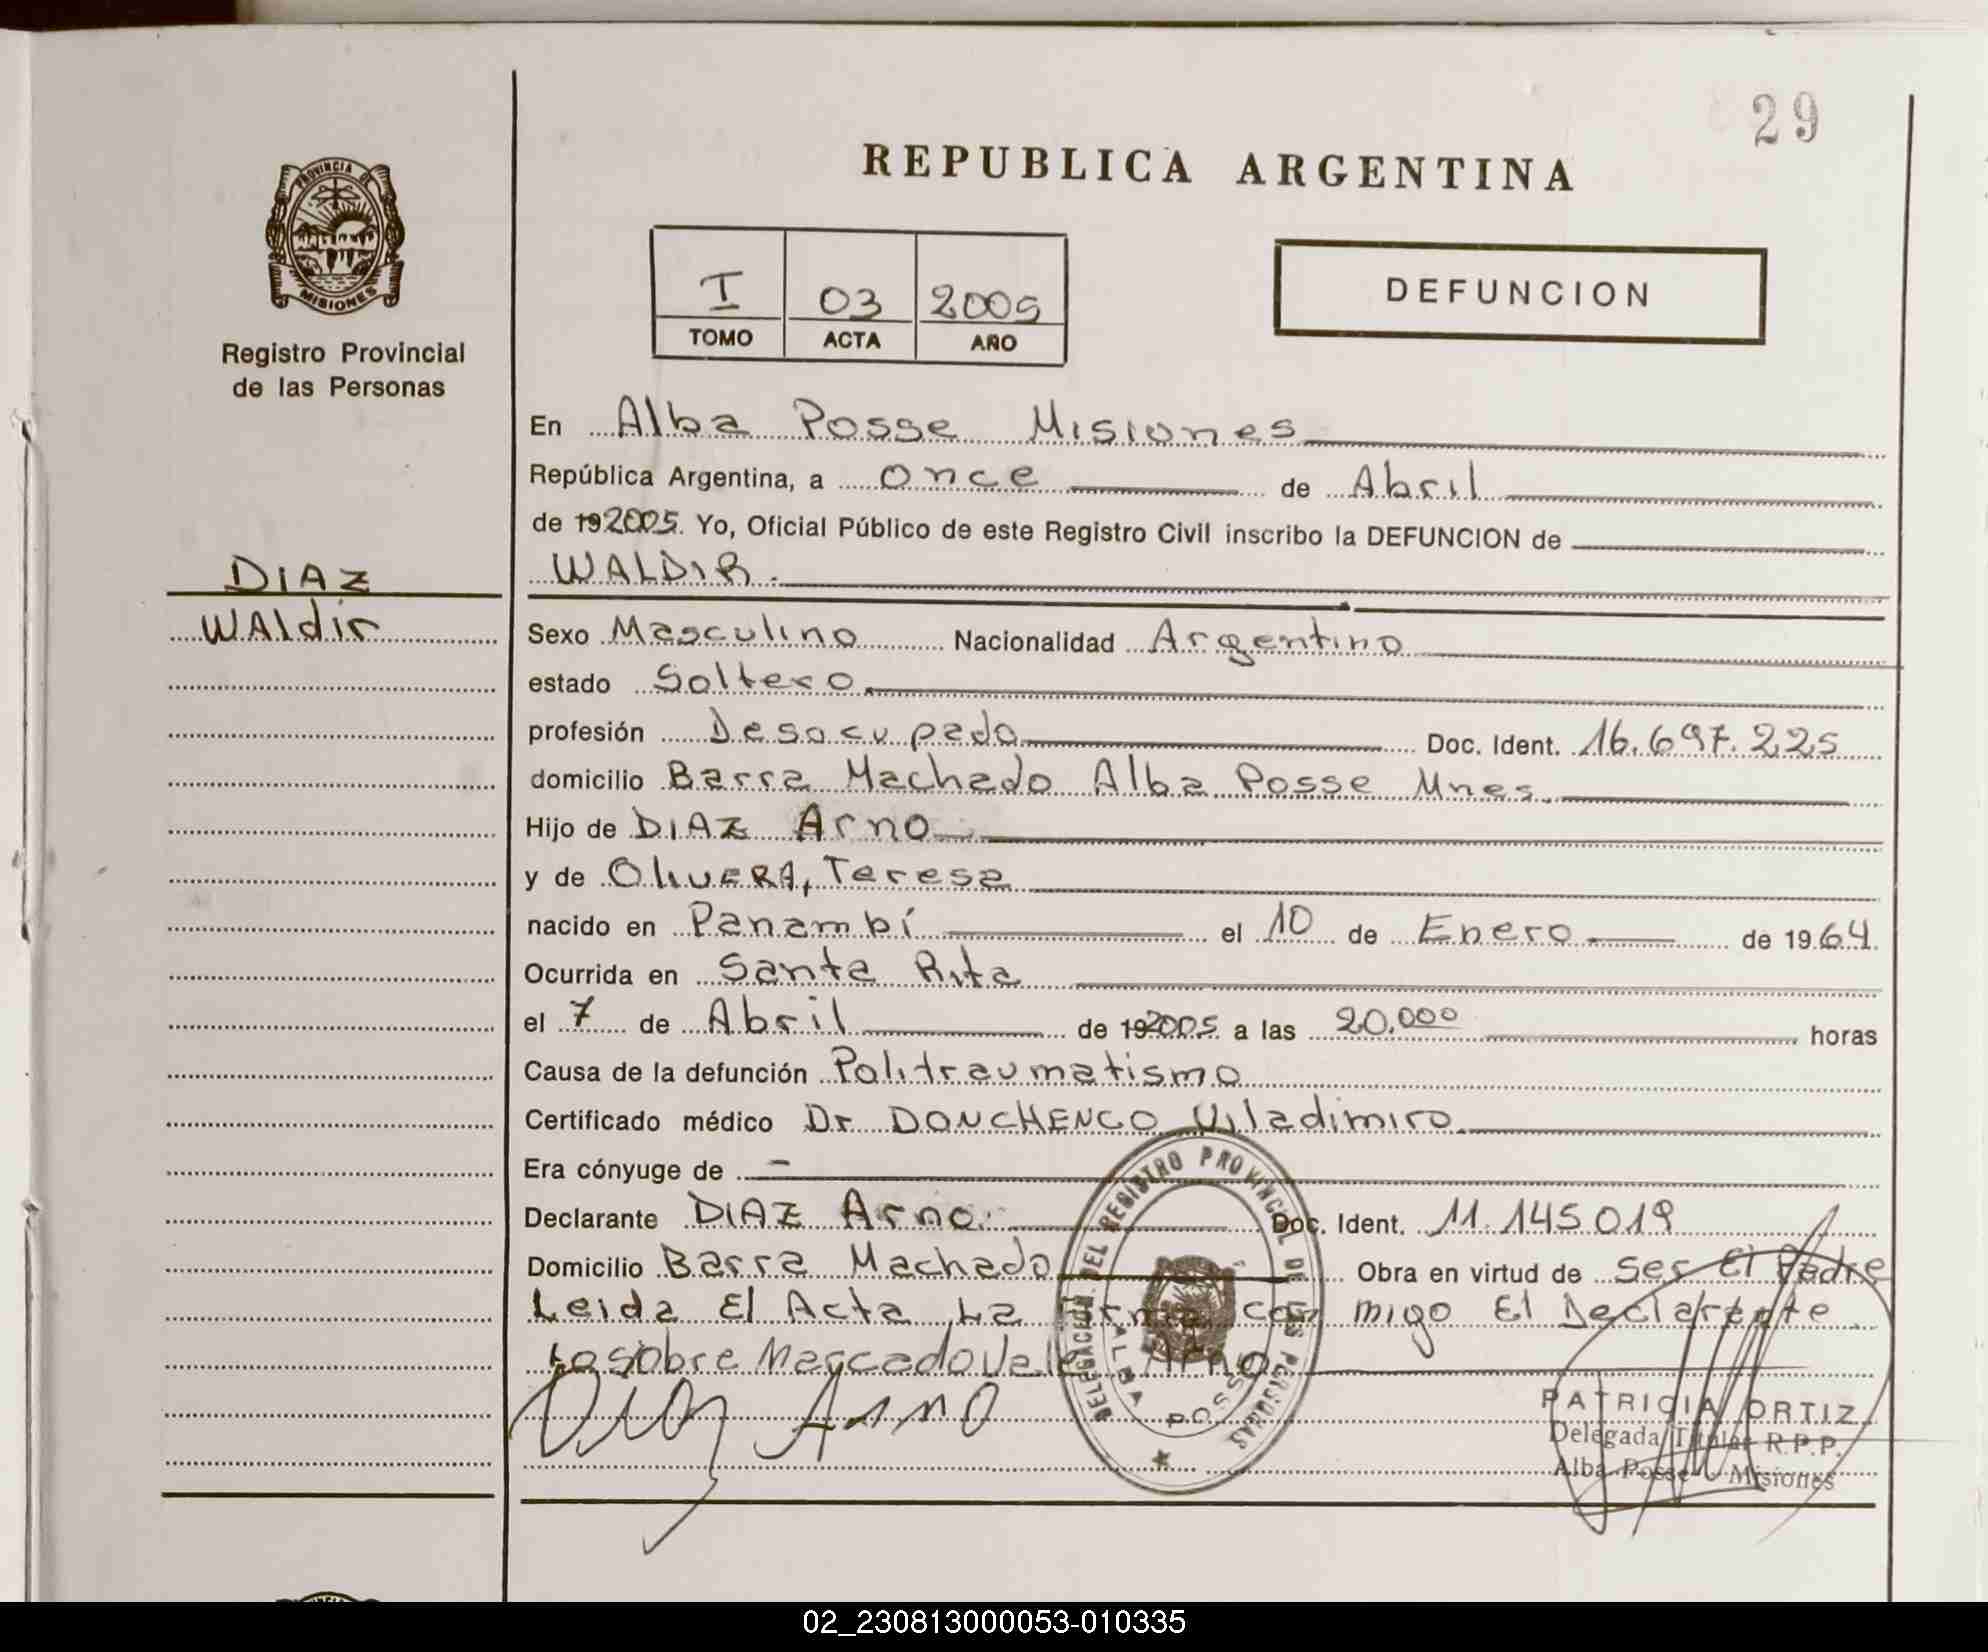 29
PROVINCIA DE
MISIONES
REPUBLICA ARGENTINA
I 03 2005
TOMO ACTA AÑO
DEFUNCION
Registro Provincial
de las Personas
DIAZ
WAldir
En Alba Posse Misiones
República Argentina, a once de Abril
de 192005. Yo, Oficial Público de este Registro Civil inscribo la DEFUNCION de
WALDIR.
Sexo Masculino Nacionalidad Argentino
estado Soltero.
profesión Desocupado Doc. Ident. 16.697.225
domicilio Barra Machado Alba Posse Mnes.
Hijo de DIAZ Arno
y de OlivERA, Teresa
nacido en Panambí el 10 de Enero de 1964.
Ocurrida en Santa Rita
el 7 de Abril de 192005 a las 20.000 horas
Causa de la defunción Politraumatismo
Certificado médico Dr DONCHENCO Viladimiro.
Era cónyuge de -
Declarante DIAZ Arno. Doc. Ident. 11.145019
Domicilio Barra Machado Obra en virtud de Ser El Padre
Leida El Acta La Firma con migo El Declarante.
Lo sobre Marcado Vale Arno
Diaz Arno
DELEGACION DEL REGISTRO PROVINCIAL DE LAS PERSONAS
ALBA POSSE
PATRICIA ORTIZ
Delegada Titular R.P.P.
Alba Posse - Misiones
02_230813000053-010335